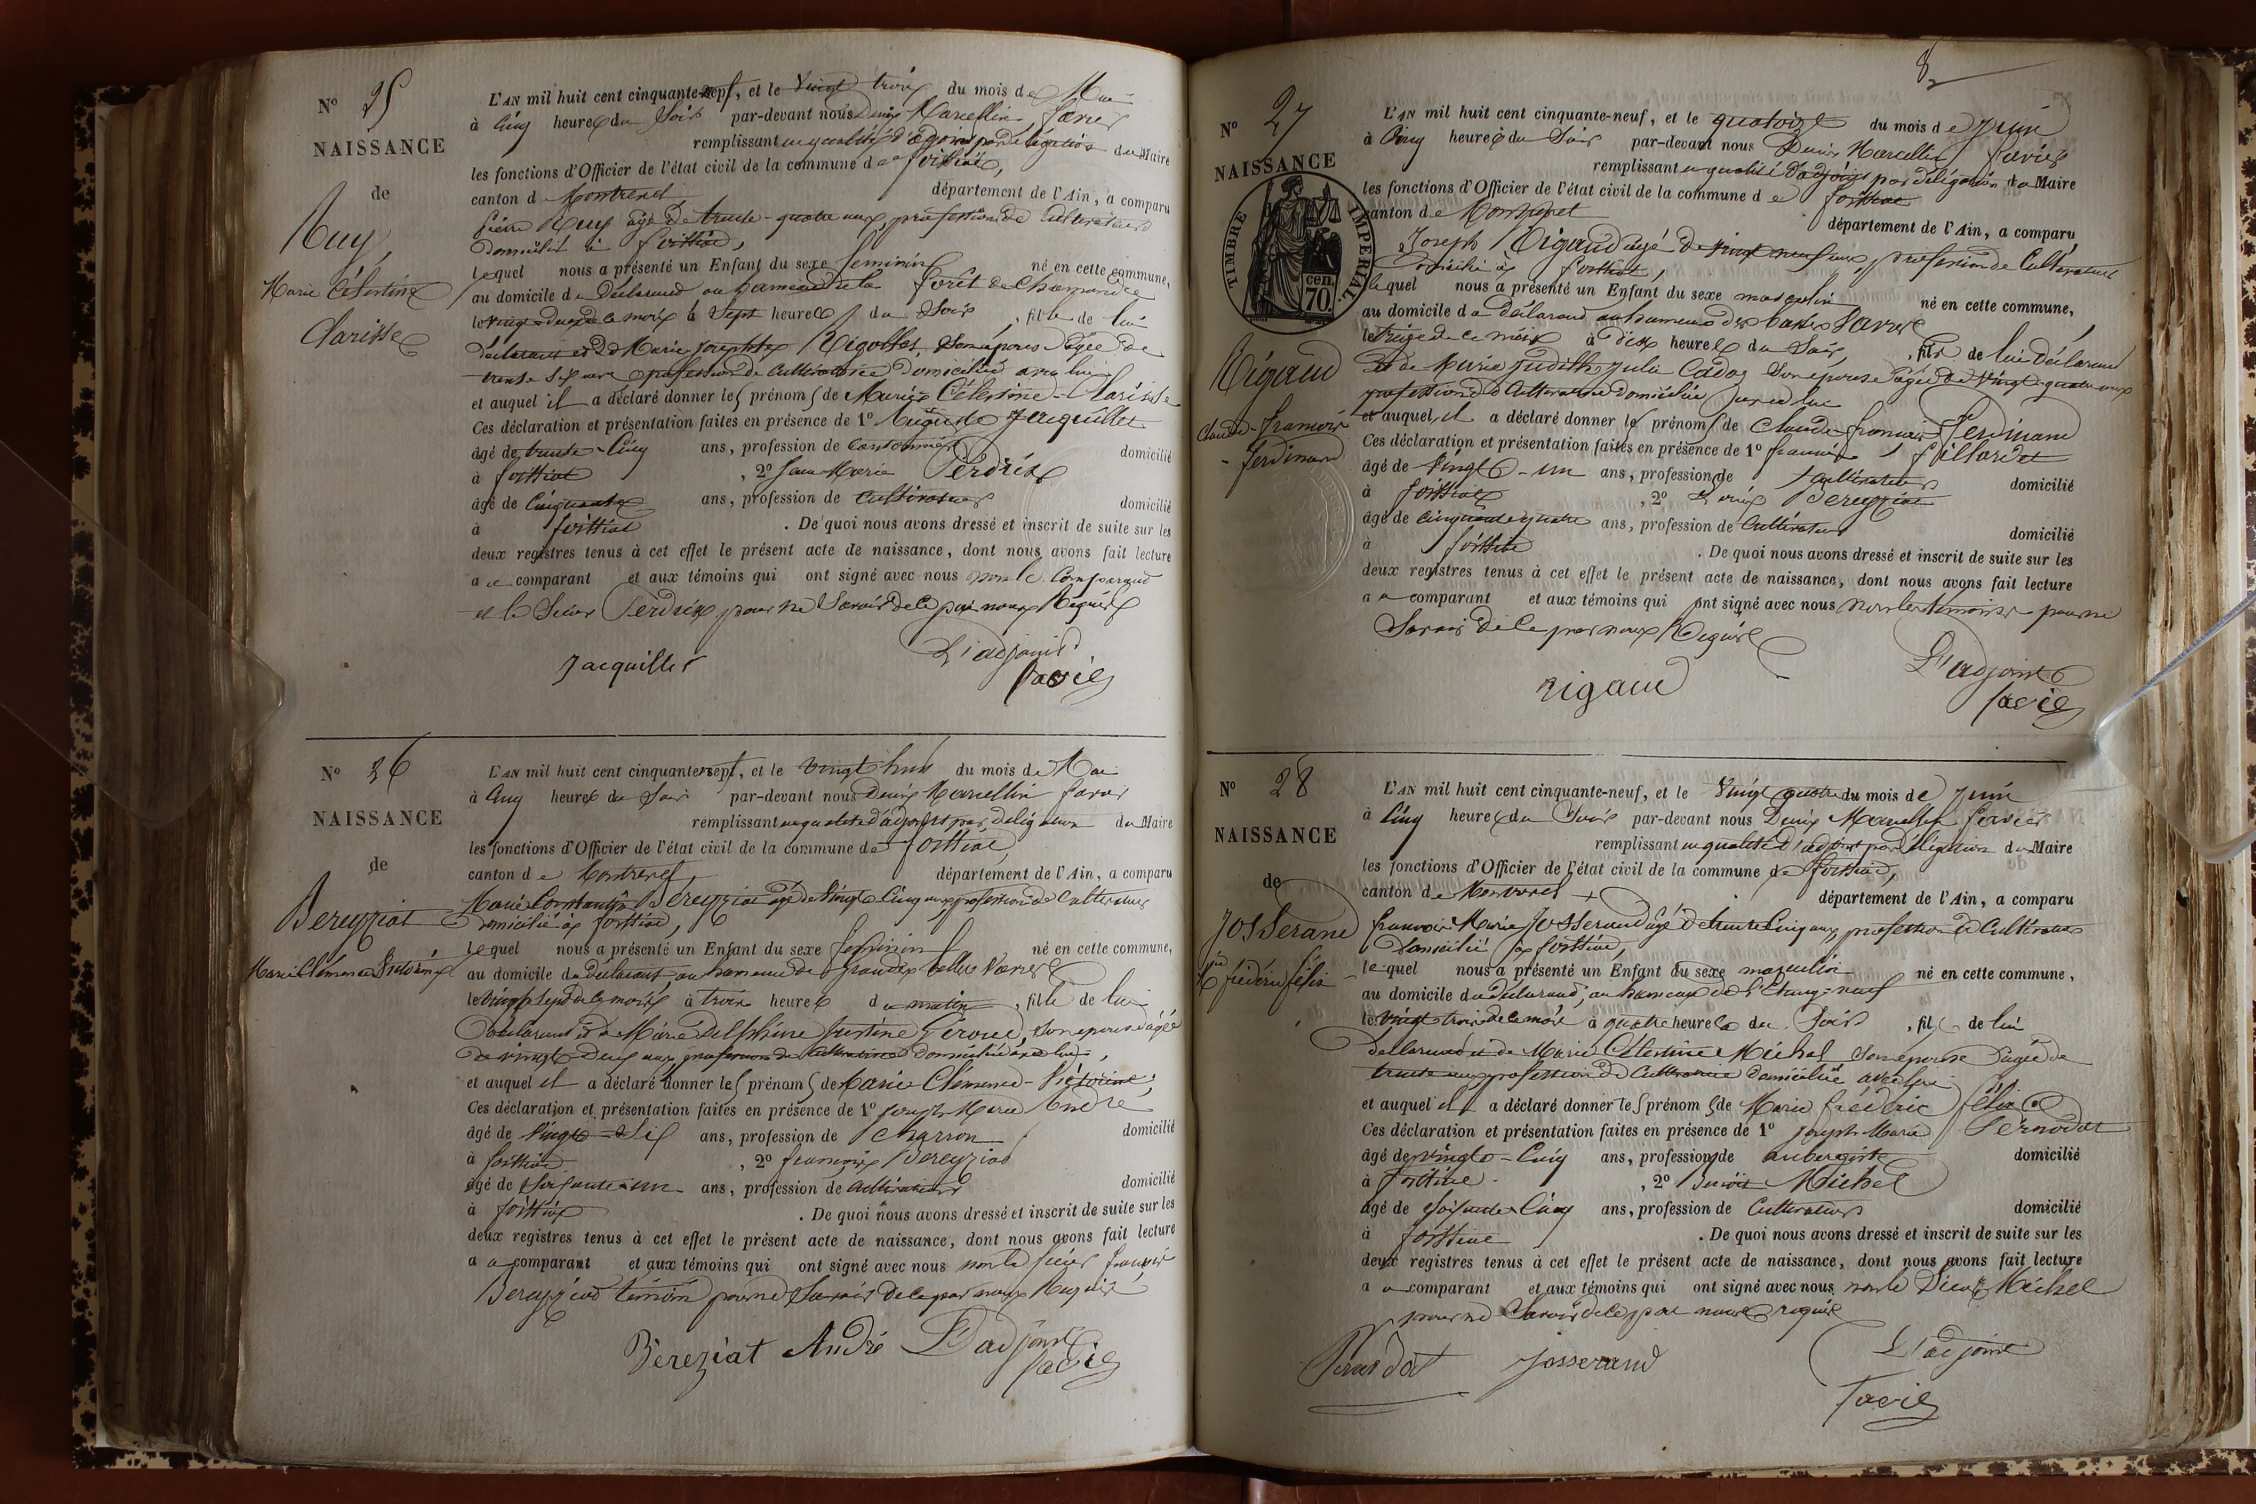 N° 25
NAISSANCE
de
Ruy,
Marie Célestine
Clarisse
L'AN mil huit cent cinquante-neuf, et le Vingt trois du mois de Mai
à Cinq heures du Soir par-devant nous Denis Marcellin Favier
remplissant en qualité d'adjoint par délégation du Maire
les fonctions d'Officier de l'état civil de la commune de foissiat,
canton de Montrevel département de l'Ain, a comparu
Pierre Ruy âgé de trente-quatre ans, profession de Cultivateur
domicilié à foissiat,
lequel nous a présenté un Enfant du sexe féminin né en cette commune,
au domicile du déclarant au hameau de la forêt de Chamandre
le vingt-deux de ce mois à Sept heures du Soir, fille de lui
déclarant et de Marie Josephte Rigollet, Son épouse âgée de
trente six ans profession de Cultivatrice domiciliée avec lui
et auquel il a déclaré donner les prénoms de Marie Célestine-Clarisse
Ces déclaration et présentation faites en présence de 1° Auguste Jacquillet
âgé de trente-Cinq ans, profession de Cantonnier domicilié
à foissiat, 2° Jean-Marie Perdrix
âgé de Cinquante ans, profession de Cultivateur domicilié
à foissiat. De quoi nous avons dressé et inscrit de suite sur les
deux registres tenus à cet effet le présent acte de naissance, dont nous avons fait lecture
au comparant et aux témoins qui ont signé avec nous non le Comparant
et le Sieur Perdrix pour ne Savoir de ce par nous Requis
L'adjoint
Jacquillet Favier
N° 26
NAISSANCE
de
Bereyziat
Marie Clémence Victorine
L'AN mil huit cent cinquante-neuf, et le vingt huit du mois de Mai
à Cinq heures du Soir par-devant nous Denis Marcellin Favier
remplissant en qualité d'adjoint par délégation du Maire
les fonctions d'Officier de l'état civil de la commune de foissiat,
canton de Montrevel, département de l'Ain, a comparu
Marie Constantin Bereyziat âgé de Vingt Cinq ans profession de Cultivateur
domicilié à foissiat,
lequel nous a présenté un Enfant du sexe féminin né en cette commune,
au domicile du déclarant au hameau de grandes belles Vavres
le Vingt sept de ce mois, à trois heures du matin, fille de lui
déclarant et de Marie Delphine Justine Son épouse âgée
de vingt-Deux ans profession de Cultivatrice domiciliée avec lui,
et auquel il a déclaré donner les prénoms de Marie Clémence-Victorine;
Ces déclaration et présentation faites en présence de 1° Joseph Marie André
âgé de Vingt-Six ans, profession de Charron domicilié
à foissiat, 2° françois Bereyziat
âgé de Soixante-un ans, profession de Cultivateur domicilié
à foissiat. De quoi nous avons dressé et inscrit de suite sur les
deux registres tenus à cet effet le présent acte de naissance, dont nous avons fait lecture
au comparant et aux témoins qui ont signé avec nous non le Sieur françois
Bereyziat témoin pour ne Savoir de ce par nous Requis
Bereziat André L'adjoint
Favier
8
N° 27
NAISSANCE
TIMBRE IMPERIAL
70 cen.
Rigaud
Claude-françois
-ferdinand
L'AN mil huit cent cinquante-neuf, et le quatorze du mois de Juin
à Cinq heures du Soir par-devant nous Denis Marcellin Favier
remplissant en qualité d'adjoint par délégation du Maire
les fonctions d'Officier de l'état civil de la commune de foissiat
canton de Montrevel département de l'Ain, a comparu
Joseph Rigaud âgé de vingt neuf ans, profession de Cultivateur
domicilié à foissiat,
lequel nous a présenté un Enfant du sexe masculin né en cette commune,
au domicile du déclarant au hameau des basses Vavres
le treize de ce mois à dix heures du Soir, fils de lui déclarant
et de Marie Judith Julie Cadoz Son épouse âgée de Vingt-quatre ans
profession de Cultivatrice domiciliée avec lui
et auquel il a déclaré donner les prénoms de Claude-françois Ferdinand
Ces déclaration et présentation faites en présence de 1° françois fillardet
âgé de Vingt-un ans, profession de Cultivateur domicilié
à foissiat, 2° Bereyziat
âgé de Cinquante quatre ans, profession de Cultivateur domicilié
à foissiat. De quoi nous avons dressé et inscrit de suite sur les
deux registres tenus à cet effet le présent acte de naissance, dont nous avons fait lecture
au comparant et aux témoins qui ont signé avec nous non les témoins pour ne
Savoir de ce par nous Requis
L'adjoint
rigaud Favier
N° 28
NAISSANCE
de
Josserand
Mie frédéric félix
L'AN mil huit cent cinquante-neuf, et le Vingt quatre du mois de Juin
à Cinq heures du Soir par-devant nous Denis Marcellin Favier
remplissant en qualité d'adjoint par délégation du Maire
les fonctions d'Officier de l'état civil de la commune de foissiat,
canton de Montrevel département de l'Ain, a comparu
françois Marie Josserand âgé de trente Cinq ans, profession de Cultivateur
domicilié à foissiat,
lequel nous a présenté un Enfant du sexe masculin né en cette commune,
au domicile du déclarant, au hameau de l'Etang-neuf
le vingt trois de ce mois à quatre heures du Soir, fils de lui
déclarant et de Marie Célestine Michel Son épouse âgée de
trente ans profession de Cultivatrice domiciliée avec lui
et auquel il a déclaré donner les prénoms de Marie frédéric félix
Ces déclaration et présentation faites en présence de 1° Joseph Marie Pernodat
âgé de vingt-Cinq ans, profession de aubergiste domicilié
à foissiat, 2° Benoît Michel
âgé de Soixante-Cinq ans, profession de Cultivateur domicilié
à foissiat. De quoi nous avons dressé et inscrit de suite sur les
deux registres tenus à cet effet le présent acte de naissance, dont nous avons fait lecture
au comparant et aux témoins qui ont signé avec nous non le Sieur Michel
pour ne Savoir de ce par nous requis
L'adjoint
josserand
Favier